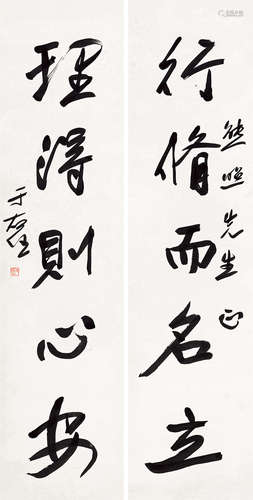 行脩而名立
熊照先生正
理得則心安
于右任